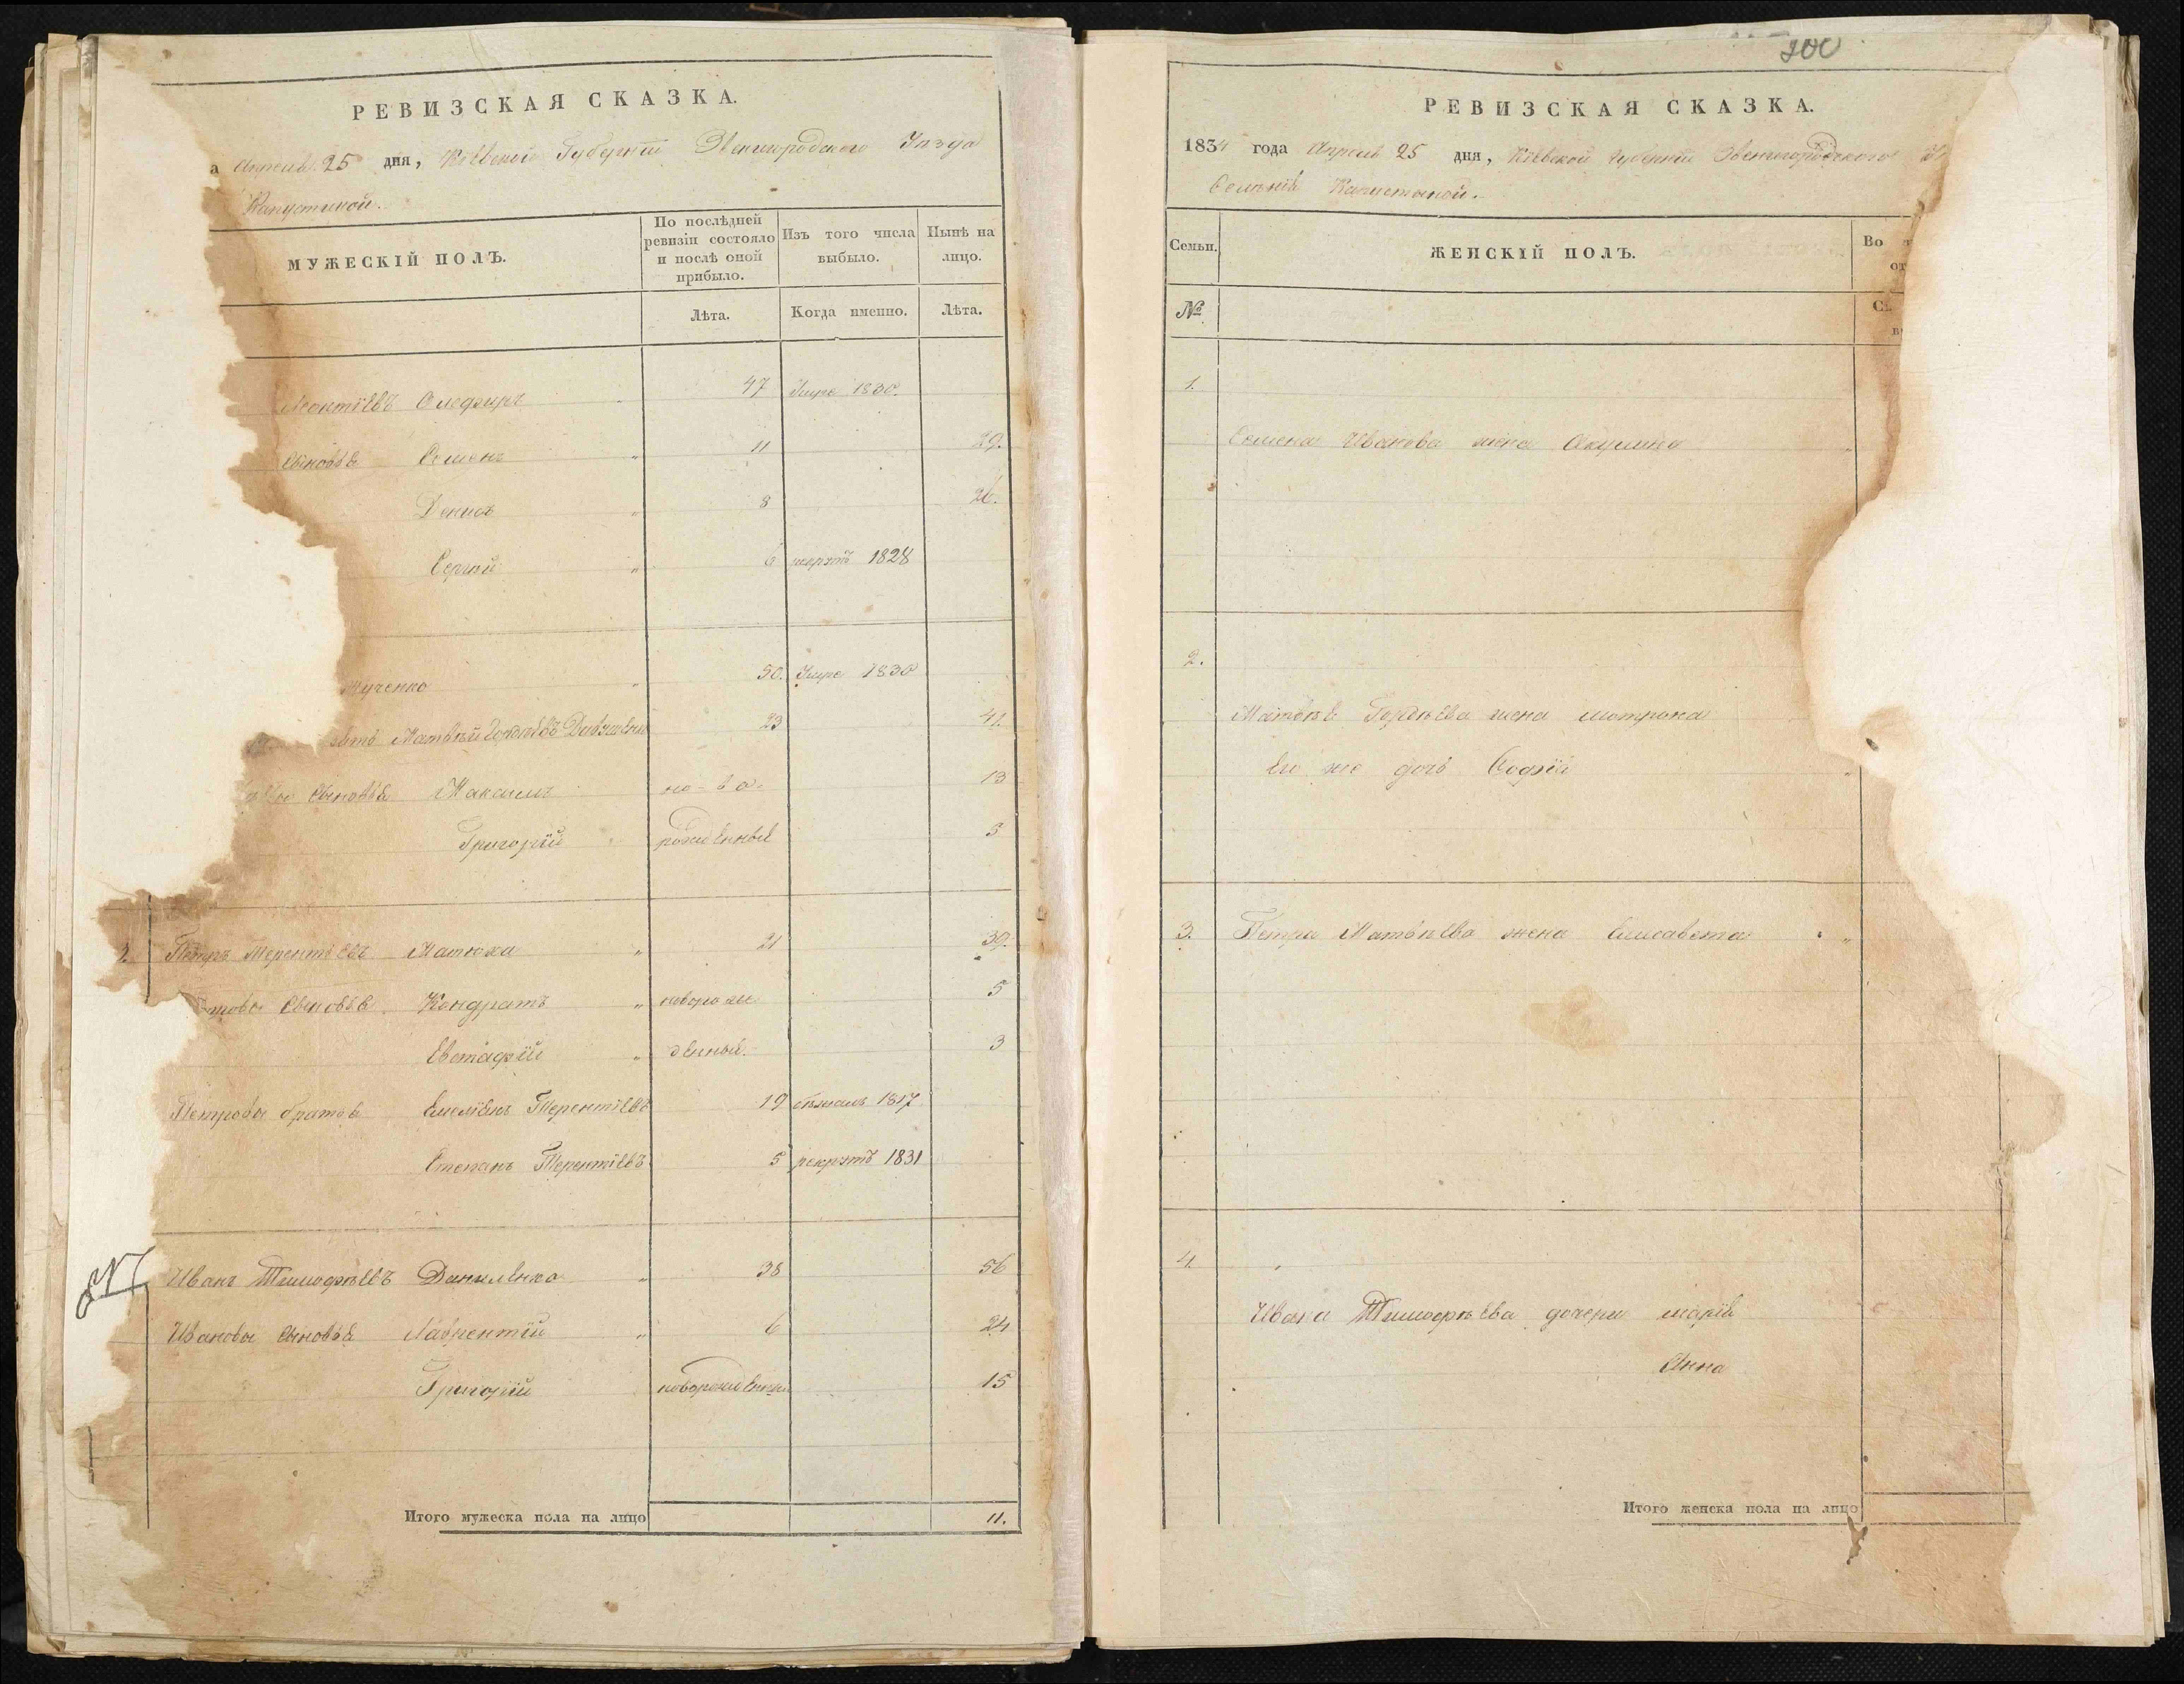 РЕВИЗСКАЯ СКАЗКА.
а Апреля 25 дня, Кіевской Губерніи Звенигородского Уезда
Капустиной.
МУЖЕСКІЙ ПОЛЪ.
По послѣдней ревизіи состояло и послѣ оной прибыло.
Изъ того числа выбыло.
Нынѣ на лицо.
Лѣта.
Когда именно.
Лѣта.
Леонтіевъ Олефиръ 47 Умре 1830.
Сыновья Семенъ 11 29.
Денисъ 8 26.
Сергій 6 1828
50. Умре 1830
зять Матвѣй Гордѣевъ 23 41.
Сыновья Максимъ но-во- 13
Григорій рожденные 3
3. Петръ Терентіевъ Матюха 21 39.
Сыновья Кондратъ новорож 5
Евстафій денный. 3
Петрова братья Емеліянъ Терентіевъ 19 бѣжалъ 1817
Степанъ Терентіевъ 5 рекрутъ 1831
Иванъ Тимофѣевъ Даниленко 38 56
Ивановы Сыновья Лаврентій 6 24
Григорій новорожденны 15
Итого мужеска пола на лицо 11.
200
РЕВИЗСКАЯ СКАЗКА.
1834 года Апреля 25 дня, Кіевской Губерніи Звенигородского
Селенія Капустиной.
Семьи.
ЖЕНСКІЙ ПОЛЪ.
Во
от
№
1.
Семена Иванова жена Акулина
2.
Матвѣя Гордѣева жена Мотрона
Его же дочь Софія
3. Петра Матвѣева жена Елисавета
4.
Ивана Тимофѣева дочери Марія
Анна
Итого женска пола на лицо